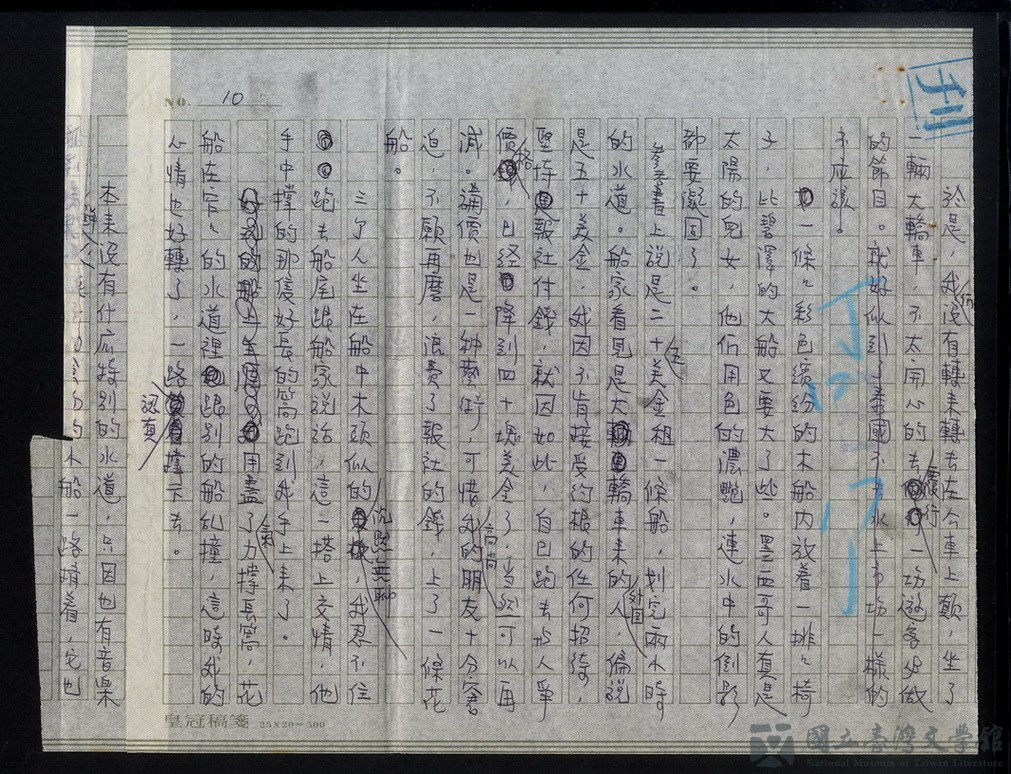 刊
NO. 10
於是，我們沒有轉來轉去在公車上顛，坐了
一輛大轎車，不太用心的去履行一切遊客必做
的節目。就好似到了泰國不去水上市場一樣的
不應該。
一條條彩色繽紛的木船內放着一排排椅
子，比碧澤的大船又要大了些。墨西哥人真是
太陽的兒女，他們用色的濃艷，連水中的倒影
都要凝固了。
參考書上說是二十美金租一條船，划完兩小時
的水道。船家看見是大轎車來的外國人，偏說
是五十美金，我因不肯接受約根的任何招待，
堅持報社付錢，就因如此，自己跑去找人爭
價格，已經降到四十塊美金了，當然可以再
減。講價也是一种藝術，可惜我的朋友十分高尚窘
迫，不願再磨，浪費了報社的錢，上了一條花
船。
三个人坐在船中木頭似的沉默無聊，我忍不住
跑去船尾跟船家說話，這一搭上交情，他
手中撐的那隻好長的篙跑到我手上來了。
用盡了力氣撐長篙，花
船在窄窄的水道裡跟別的船乱撞，這時我的
心情也好轉了，一路認真撐下去。
本來沒有什麼特別的水道，只因也有音樂
木船一路擠着，它也
皇冠稿箋 25X20=500
國立臺灣文學館
National Museum of Taiwan Literature